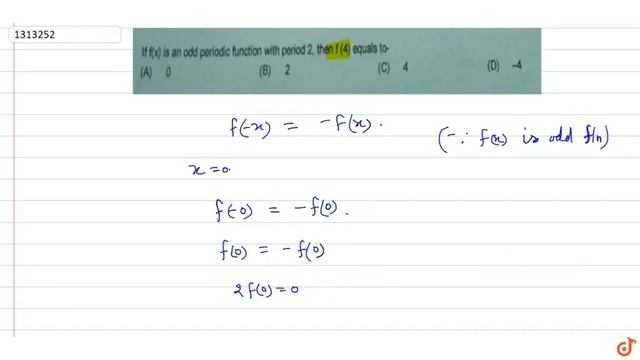 1313252
If f(x) is an odd periodic function with period 2, then f (4) equals to-
(A) 0 (B) 2 (C) 4 (D) –4
f(-x) = -f(x). (∵ f(x) is odd f(n)
x=0.
f(-0) = -f(0).
f(0) = -f(0)
2f(0)=0